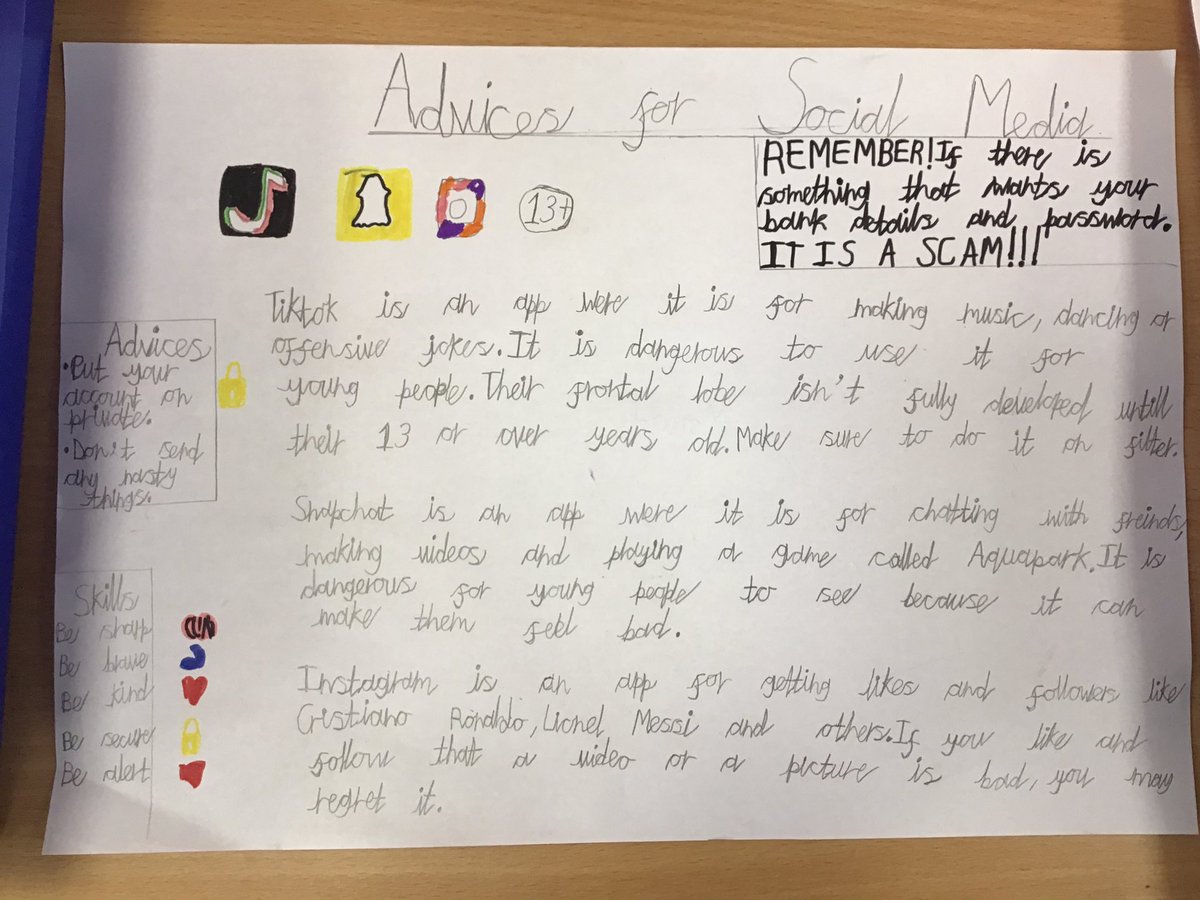 Advices for Social Media
13+
REMEMBER!If there is
something that wants your
bank details and password.
IT IS A SCAM!!!
Tiktok is an app were it is for making music, dancing or
offensive jokes.It is dangerous to use it for
young people.Their frontal lobe isn't fully developed untill
their 13 or over years old.Make sure to do it on filter.
Advices
•Put your
account on
private.
•Don't send
any nasty
things.
Snapchat is an app were it is for chatting with freinds,
making videos and playing a game called Aquapark.It is
dangerous for young people to see because it can
make them feel bad.
Skills
Be sharp
Be brave
Be kind
Be secure
Be alert
Instagram is an app for getting likes and followers like
Cristiano Ronaldo,Lionel Messi and others.If you like and
follow that a video or a picture is bad,you may
regret it.